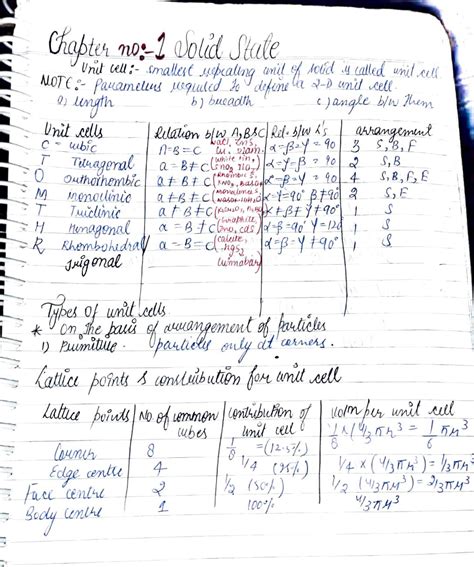 Chapter no:-1 Solid State
Unit cell:- smallest repeating unit of solid is called unit cell
NOTE:- Parameters required to define a 2-D unit cell.
a) length b) breadth c) angle b/w them
Unit cells Relation b/w A,B&C Rel. b/w L's arrangement
C - cubic A=B=C α=β=γ=90 3 S, B, F
T Tetragonal a=B≠C α=β=γ=90 2 S, B
O Orthothombic a≠B≠C α=β=γ=90 4 S, B, F, E
M Monoclinic a≠B≠C α=γ=90° β≠90 2 S, E
T Triclinic A≠B≠C α≠β≠γ≠90° 1 S
H Hexagonal a=B≠C α=β=90° γ=120 1 S
R Rhombohedral a=B=C α=β=γ≠90° 1 S
Trigonal
Types of unit cells
* On the basis of arrangement of particles
1) Primitive. particles only at corners.
Lattice points & contribution for unit cell
Lattice points No. of common cubes contribution of unit cell volm per unit cell
Corner 8 1/8 = (12.5%) 1/8 × (4/3πr³) = 1/6 πr³
Edge centre 4 1/4 (25%) 1/4 × (4/3πr³) = 1/3πr³
Face centre 2 1/2 (50%) 1/2 (4/3πr³) = 2/3πr³
Body centre 1 100% 4/3πr³